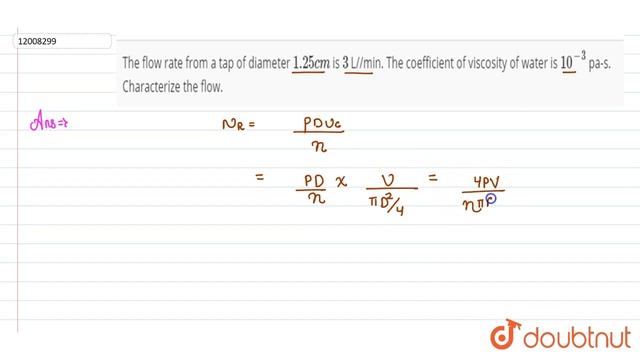 12008299
The flow rate from a tap of diameter 1.25cm is 3 L//min. The coefficient of viscosity of water is 10⁻³ pa-s.
Characterize the flow.
Ans⇒
NR = PDVc/n
= PD/n × V/πD²/4 = 4PV/nπP
doubtnut